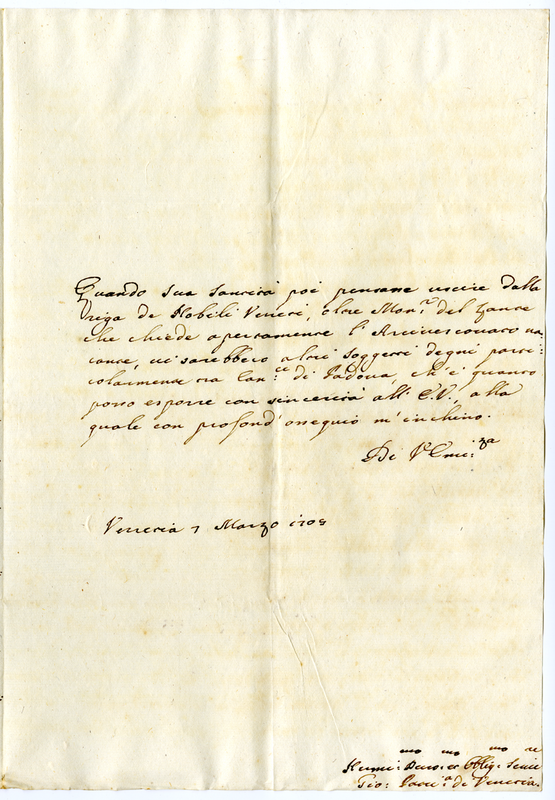 Quando sua Santità poi pensasse uscire dalla
riga de Nobili Veneti, oltre Mon.r del Zante
che chiede apertamente l'Arcivescovato va-
cante, vi sarebbero altri Soggetti degni parti-
colarmente tra Can.ci di Padova, ch'è quanto
posso esporre con sincerità all' E.V., alla
quale con profond'ossequio m'inchino.
Di V. Emi:za
Venetia 7 Marzo 1705
Humi:mo Devo:mo et Oblig:mo Serv:re
Gio: Patri:a di Venetia.